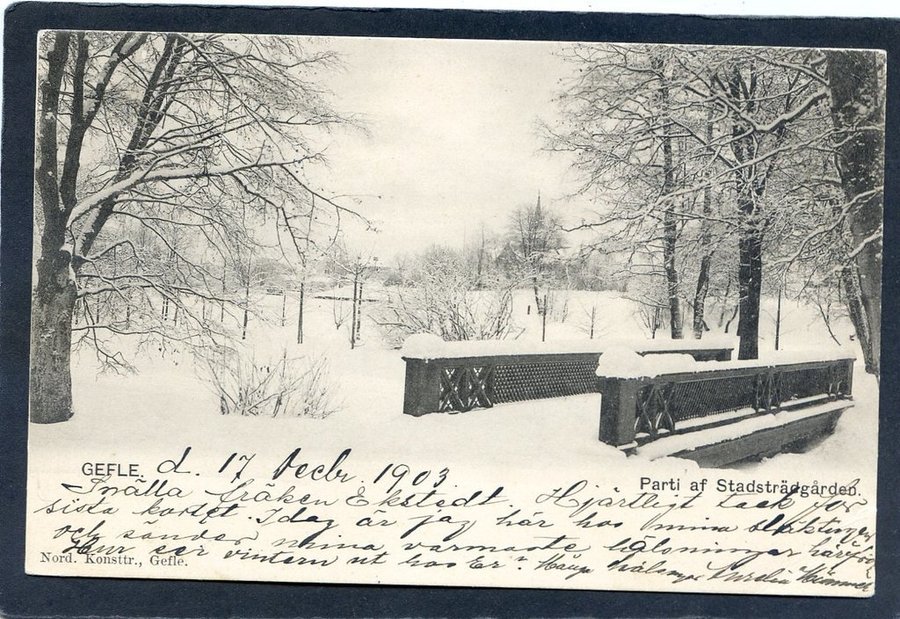 GEFLE. d. 17 Decbr. 1903.
Parti af Stadsträdgården.
Snälla fröken Ekstedt. Hjärtligt tack för
sista kortet. Idag är jag här hos mina släktingar
och sänder mina varmaste hälsningar härifrån
Hur ser vintern ut hos Er? hälsn. Aurelia
Nord. Konsttr., Gefle.